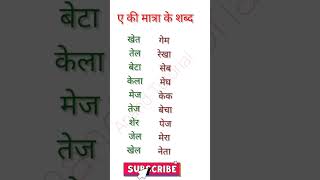 ए की मात्रा के शब्द
खेत गेम
तेल रेखा
बेटा सेब
केला मेघ
मेज केक
तेज बेचा
शेर पेज
जेल मेरा
खेल नेता
SUBSCRIBE